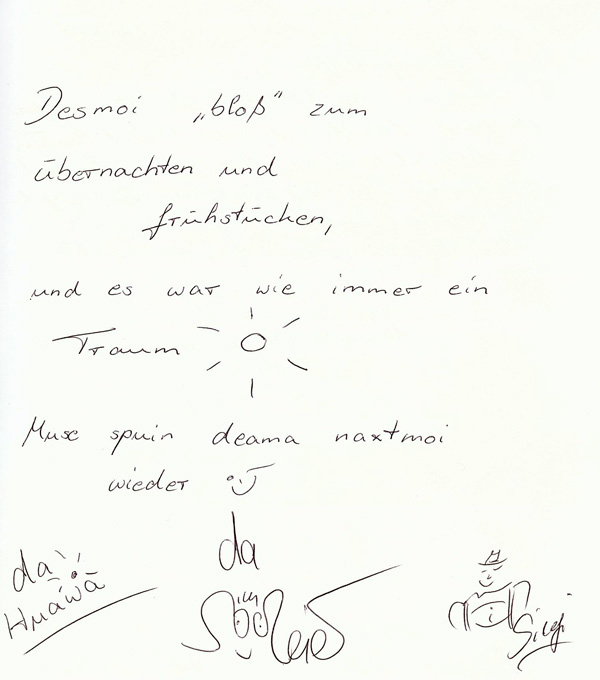 Desmoi „bloß“ zum
übernachten und
frühstücken,
und es war wie immer ein
Traum
Muse spuin deama naxtmoi
wieder
da
da
Siegi